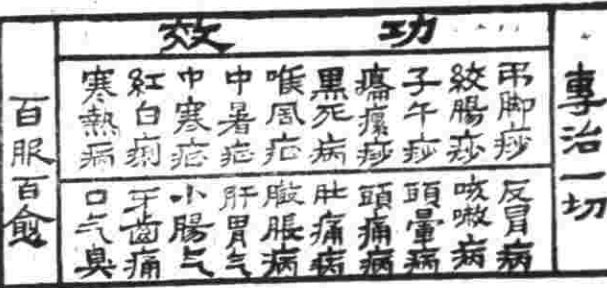 專治一切
功效
吊脚痧
絞腸痧
子午痧
癟瘰痧
黑死病
喉風症
中暑症
中寒症
紅白痢
寒熱病
反冒病
咳嗽病
頭暈病
頭痛病
肚痛病
臌脹病
肝胃气
小腸气
牙齒痛
口气臭
百服百愈